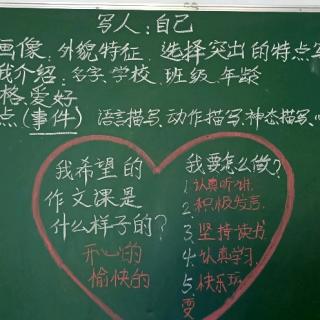 写人:自己
画像:外貌特征 选择突出的特点写
我介绍:名字、学校、班级、年龄
格、爱好
点(事件) 语言描写、动作描写、神态描写、心
我希望的
作文课是
什么样子的?
开心的
愉快的
我要怎么做?
1.认真听讲.
2.积极发言.
3.坚持读书
4.认真学习.
5.快乐玩
变